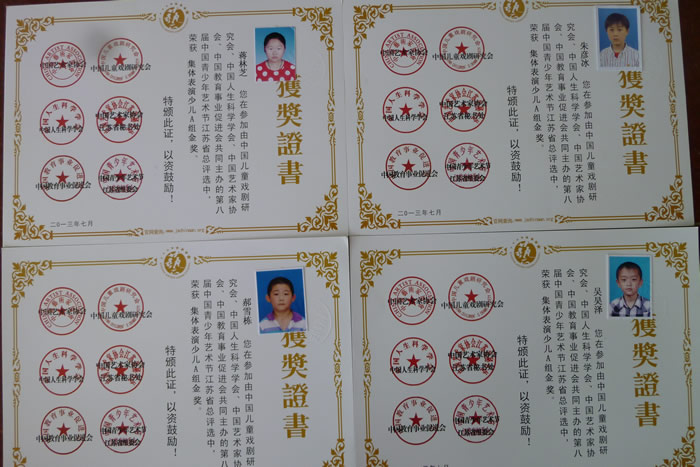 獲獎證書
蒋林芝 您在参加由中国儿童戏剧研
究会、中国人生科学学会、中国艺术家协
会、中国教育事业促进会共同主办的第八
届中国青少年艺术节江苏省总评选中,
荣获 集体表演少儿A组金奖。
特颁此证,以资鼓励!
中国艺术家协会
中国儿童戏剧研究会
中国人生科学学会
中国艺术家协会
江苏省秘书处
中国教育事业促进会
中国青少年艺术节
江苏省组委会
二〇一三年七月
獲獎證書
朱彦冰 您在参加由中国儿童戏剧研
究会、中国人生科学学会、中国艺术家协
会、中国教育事业促进会共同主办的第八
届中国青少年艺术节江苏省总评选中,
荣获 集体表演少儿A组金奖。
特颁此证,以资鼓励!
中国艺术家协会
中国儿童戏剧研究会
中国人生科学学会
中国艺术家协会
江苏省秘书处
中国教育事业促进会
中国青少年艺术节
江苏省组委会
二〇一三年七月
獲獎證書
郝雪栋 您在参加由中国儿童戏剧研
究会、中国人生科学学会、中国艺术家协
会、中国教育事业促进会共同主办的第八
届中国青少年艺术节江苏省总评选中,
荣获 集体表演少儿A组金奖。
特颁此证,以资鼓励!
中国艺术家协会
中国儿童戏剧研究会
中国人生科学学会
中国艺术家协会
江苏省秘书处
中国教育事业促进会
中国青少年艺术节
江苏省组委会
獲獎證書
吴昊泽 您在参加由中国儿童戏剧研
究会、中国人生科学学会、中国艺术家协
会、中国教育事业促进会共同主办的第八
届中国青少年艺术节江苏省总评选中,
荣获 集体表演少儿A组金奖。
特颁此证,以资鼓励!
中国艺术家协会
中国儿童戏剧研究会
中国人生科学学会
中国艺术家协会
江苏省秘书处
中国教育事业促进会
中国青少年艺术节
江苏省组委会